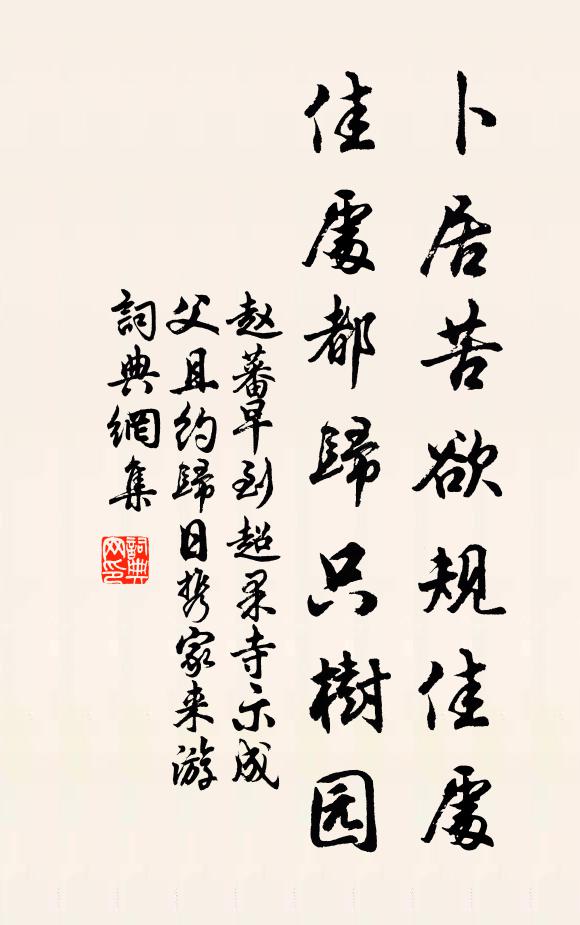 卜居苦欲规佳處
佳處都歸只樹园
赵蕃早到超果寺示成
父且约歸日携家来游
詞典網集
詞典網印